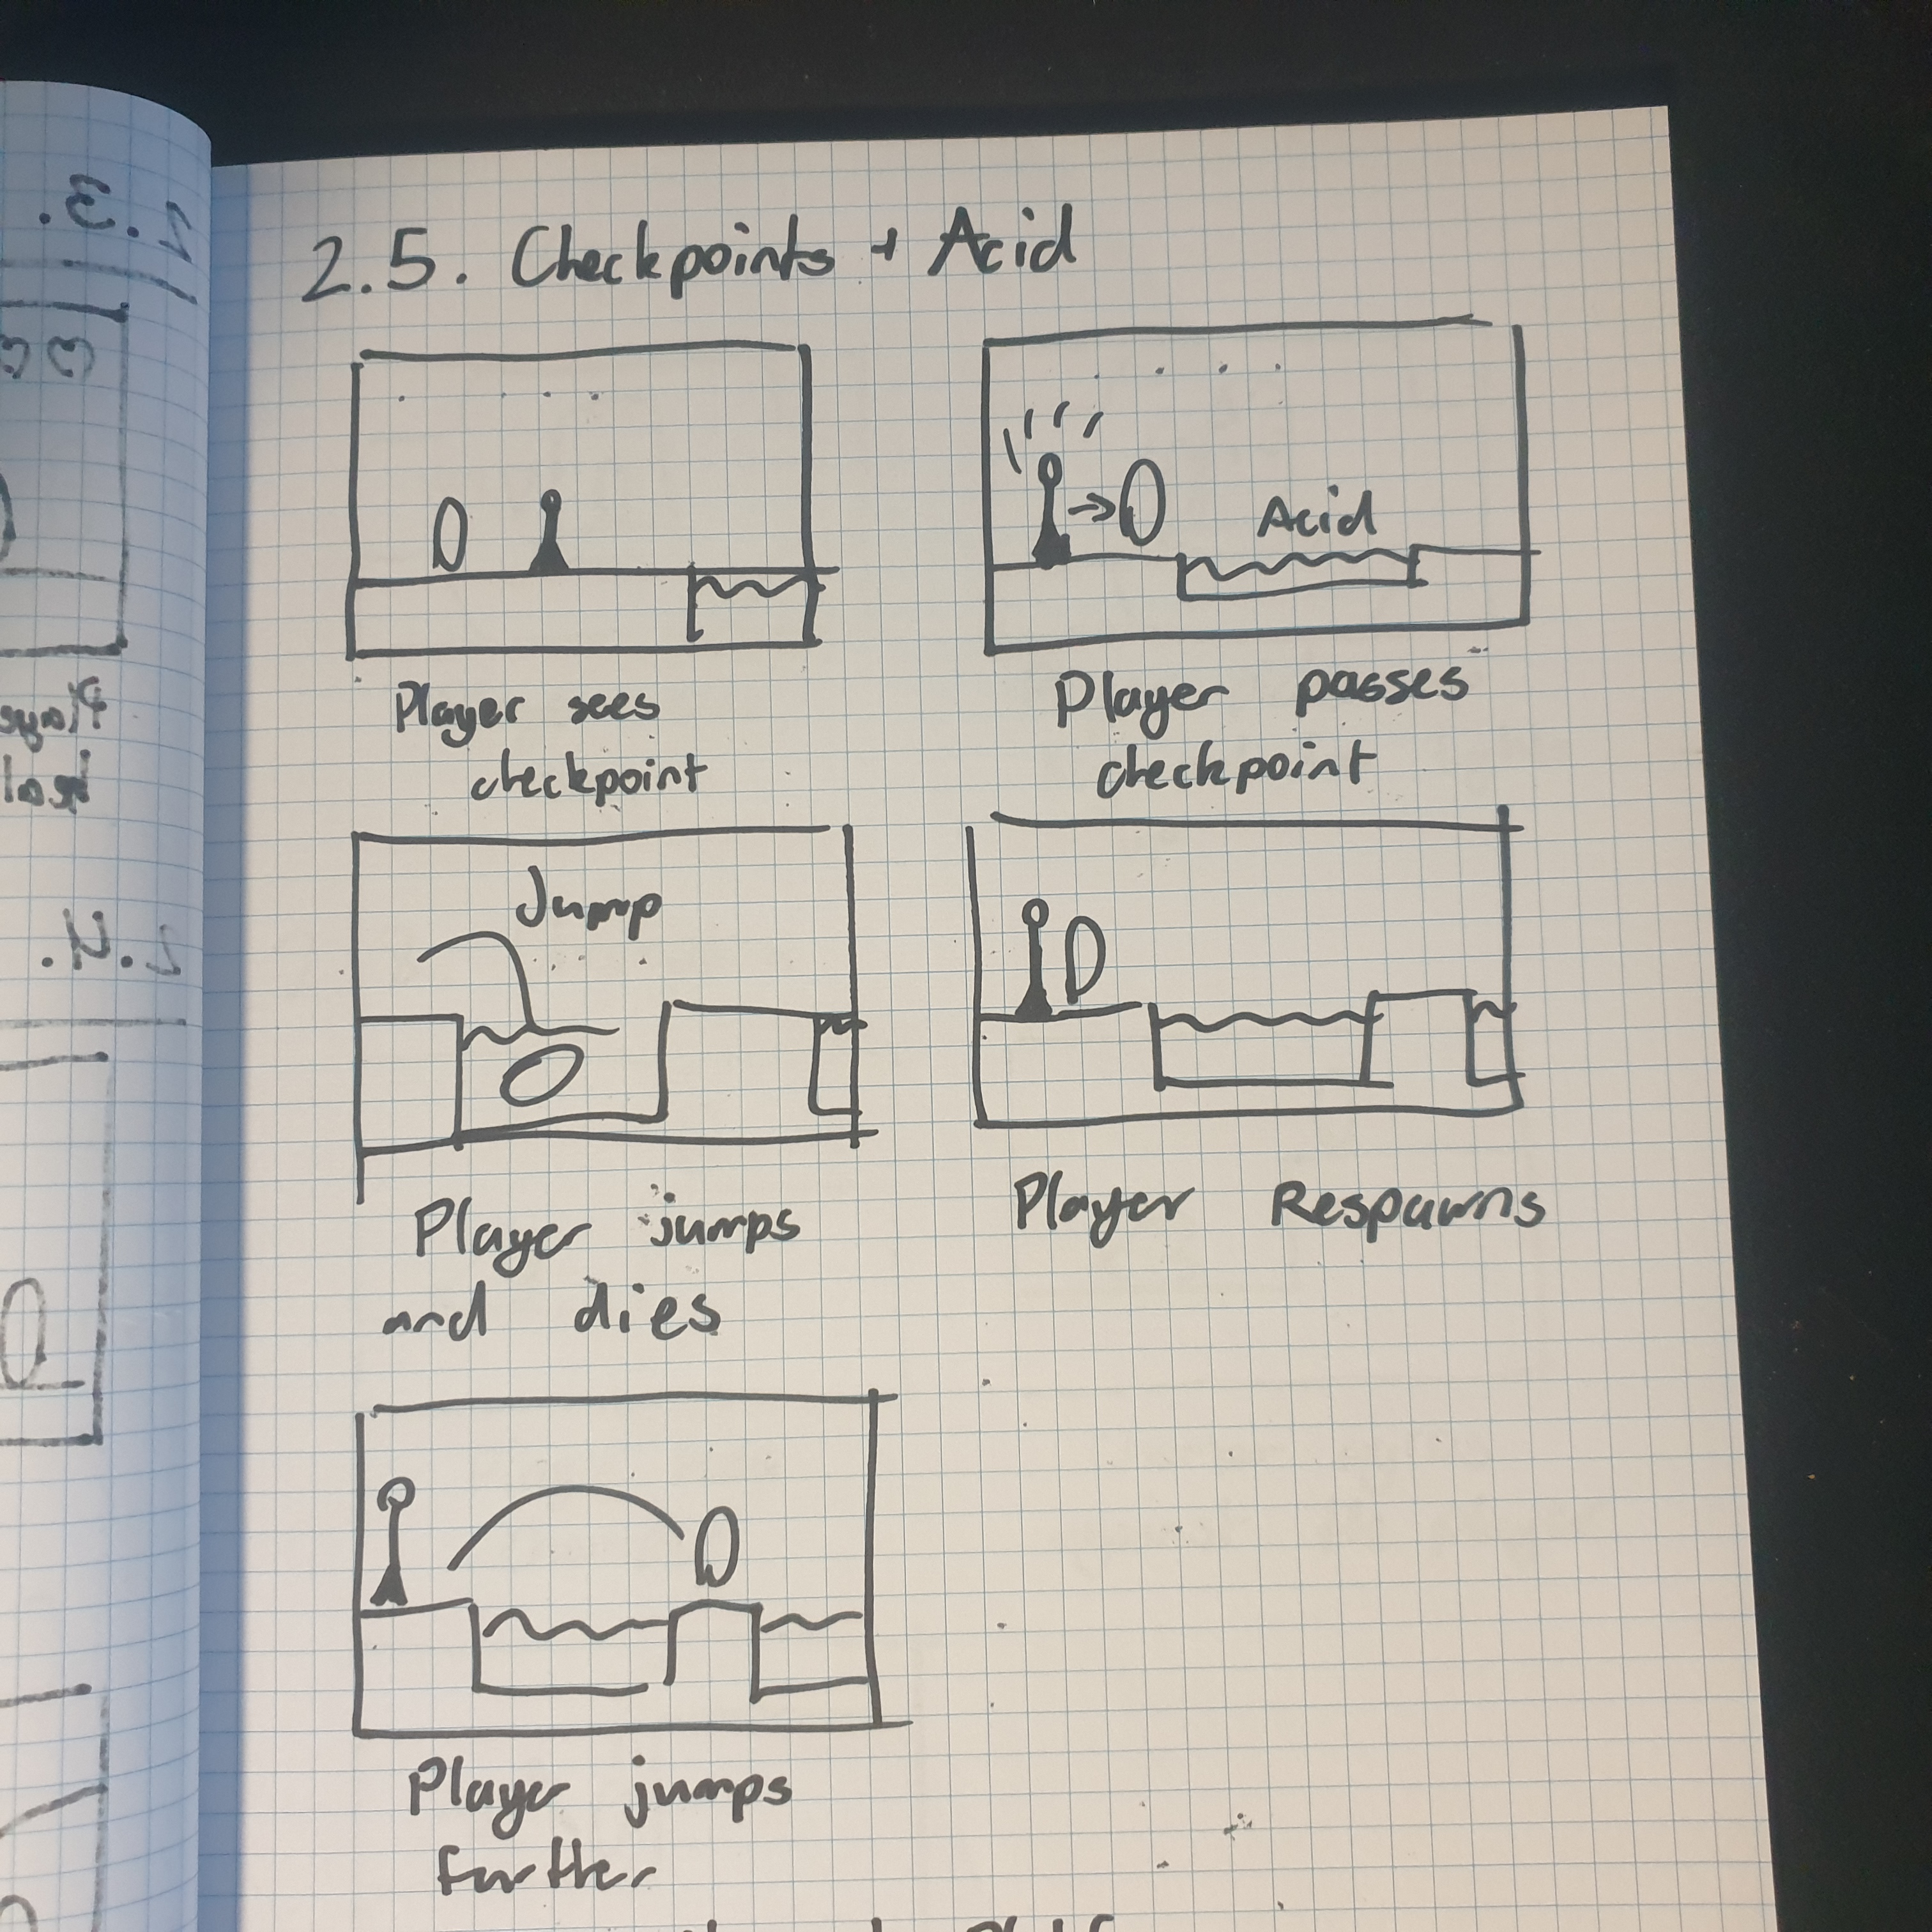 2.5. Checkpoints + Acid
Player sees
checkpoint
Acid
Player passes
checkpoint
Jump
Player jumps
and dies
Player Respawns
Player jumps
further